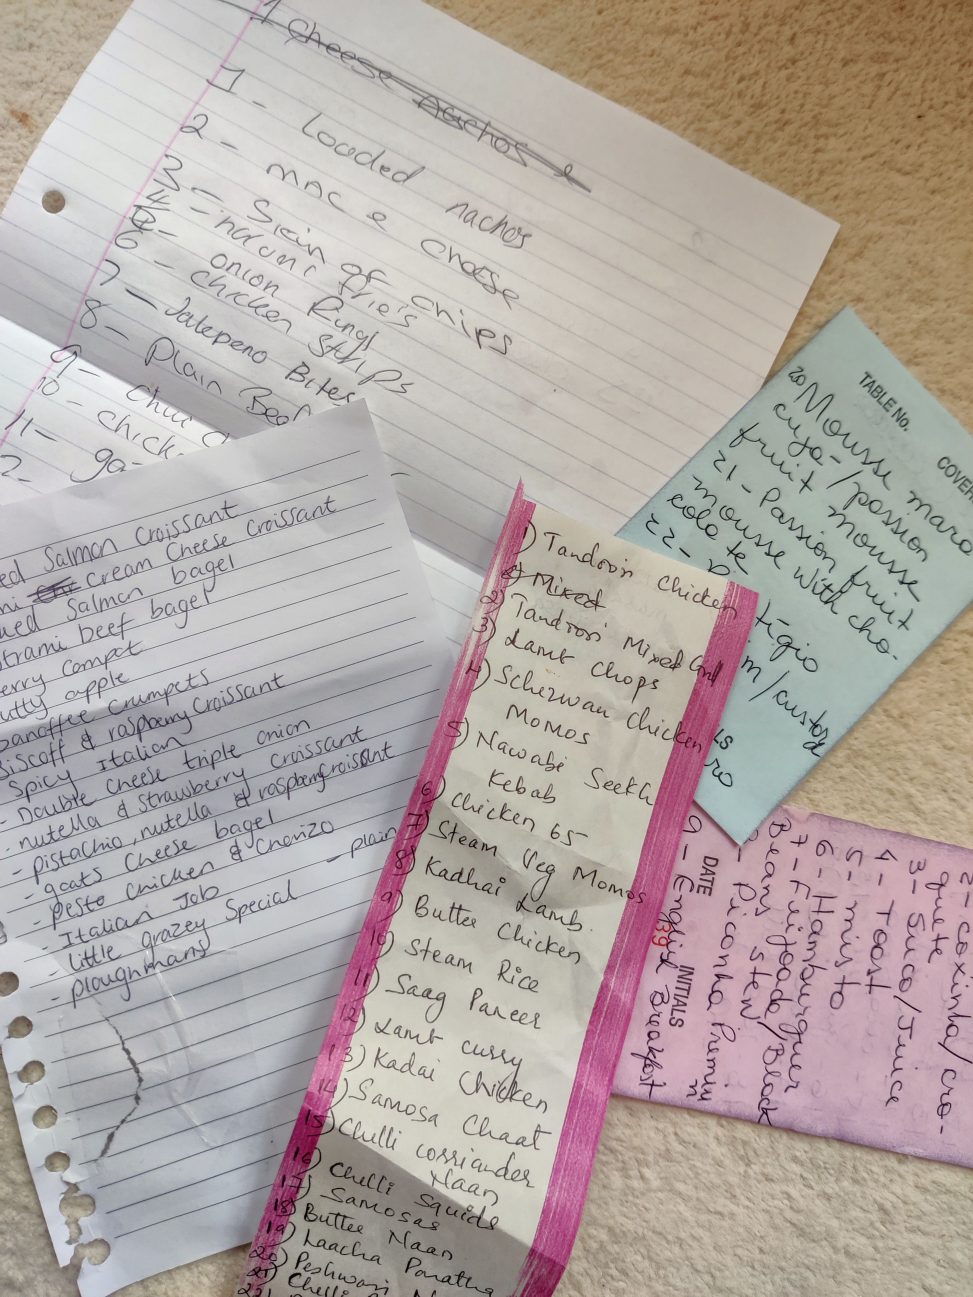 1 Cheese Nachos &
1 - Loaded nachos
2 - mac & cheese
3 - Skin of chips
4 - nduni frie's
5 - onion Rings
6 - chicken strips
7 - Jalepeno Bites
8 - Plain Beef
9 - Chilli
10 - chick
11 - ga
2 -
ed Salmon Croissant
mi Cream Cheese Croissant
ked Salmon bagel
trami beef bagel
erry compot
utty apple
banoffee crumpets
Biscoff & raspberry croissant
Spicy Italian
- Double cheese triple onion
- nutella & Strawberry croissant
- pistachio, nutella & raspberry croissant
- goats cheese bagel
- Pesto Chicken & Chorizo - plain
- Italian Job
- little grazey Special
- ploughmans
1) Tandoori Chicken
2) Mixed
2) Tandoori Mixed Grill
3) Lamb Chops
4) Schezwan Chicken
Momos
5) Nawabi Seekh
Kebab
6) Chicken 65
7) Steam Veg Momos
8) Kadhai Lamb.
9) Butter Chicken
10) Steam Rice
11) Saag Paneer
12) Lamb curry
13) Kadai Chicken
14) Samosa Chaat
15) Chilli corriander
Naan
16) Chelli Squids
17) Samosas
18) Butter Naan
19) Laacha Paratha
20) Peshwari
21) Chelli
22)
TABLE No.
COVER
20 Mousse mara
cuja-/passion
fruit mousse
21 - Passion fruit
mousse with cho-
colate
22 - P
tígio
m/custard
2 - coxinha/cro-
quete
3 - Suco/Juice
4 - Toost
5 - misto
6 - Hamburguer
7 - Feijoada/Black
Beans stew
- Piconha Premium
9 - English Breakfast
DATE
INITIALS
39